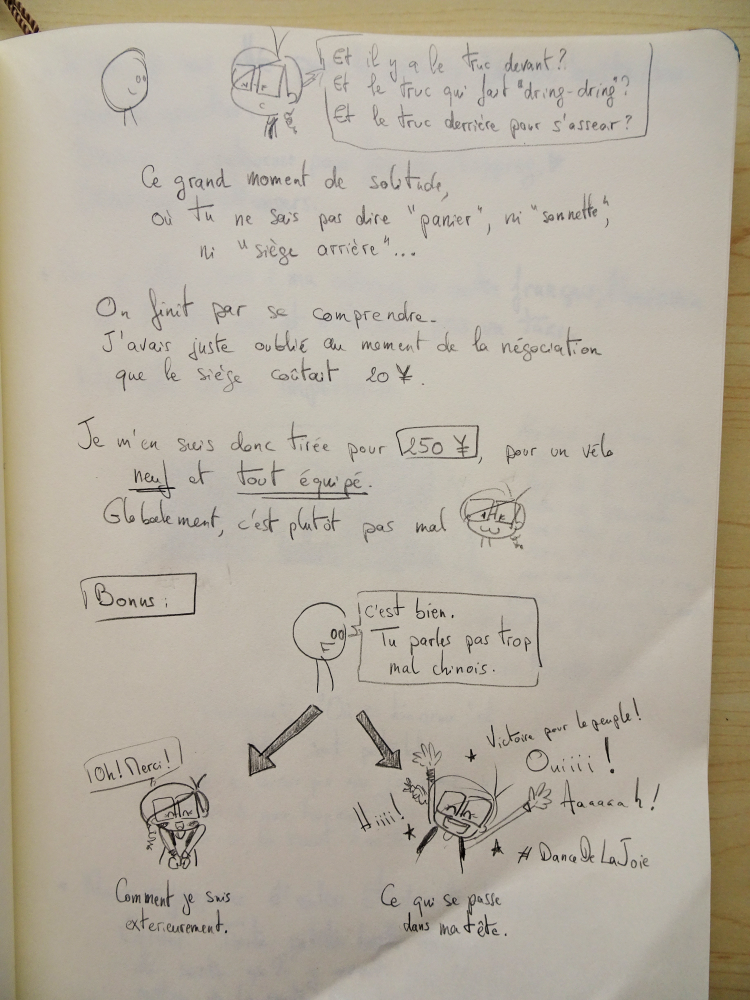 Et il y a le truc devant?
Et le truc qui fait "dring-dring"?
Et le truc derrière pour s'asseoir?
Ce grand moment de solitude,
où tu ne sais pas dire "panier", ni "sonnette",
ni "siège arrière"...
On finit par se comprendre.
J'avais juste oublié au moment de la négociation
que le siège coûtait 20 ¥.
Je m'en suis donc tirée pour 250 ¥, pour un vélo
neuf et tout équipé.
Globalement, c'est plutôt pas mal
Bonus:
C'est bien.
Tu parles pas trop
mal chinois.
Oh! Merci!
Comment je suis
exterieurement.
Victoire pour le peuple!
Ouiiii!
Hiiii!
Aaaaaah!
#DanceDeLaJoie
Ce qui se passe
dans ma tête.